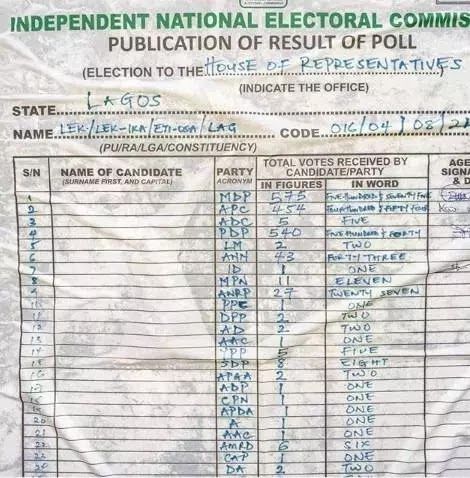 INDEPENDENT NATIONAL ELECTORAL COMMIS
PUBLICATION OF RESULT OF POLL
(ELECTION TO THE HOUSE OF REPRESENTATIVES
(INDICATE THE OFFICE)
STATE LAGOS
NAME LEK/LEK-IKA/ETI-OSA/LAG CODE 016/04/08/
(PU/RA/LGA/CONSTITUENCY)
S/N NAME OF CANDIDATE (SURNAME FIRST, AND CAPITAL) PARTY ACRONYM TOTAL VOTES RECEIVED BY CANDIDATE/PARTY IN FIGURES IN WORD AGE SIGNA & D
1 MDP 575 FIVE HUNDRED & SEVENTY FIVE
2 APC 454 FOUR HUNDRED & FIFTY FOUR
3 ADC 5 FIVE
4 PDP 540 FIVE HUNDRED & FORTY
5 LM 2 TWO
6 ANN 43 FORTY THREE
7 ID 1 ONE
8 MPN 11 ELEVEN
9 ANRP 27 TWENTY SEVEN
10 PPC 1 ONE
11 DPP 2 TWO
12 AD 2 TWO
13 AAC 1 ONE
14 YPP 5 FIVE
15 SDP 8 EIGHT
16 APAA 2 TWO
17 ADP 1 ONE
18 CPN 1 ONE
19 APDA 1 ONE
20 A 1 ONE
21 AAC 1 ONE
22 AMRD 6 SIX
23 CAP 1 ONE
24 DA 2 TWO